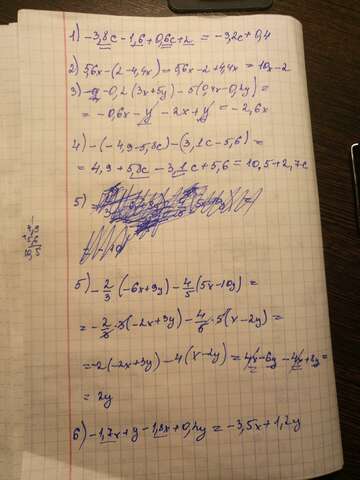 1) -3,8c - 1,6 + 0,6c + 2 = -3,2c + 0,4
2) 5,6x - (2 - 4,4x) = 5,6x - 2 + 4,4x = 10x - 2
3) -y - 0,2(3x + 5y) - 5(0,4x - 0,4y) =
= -0,6x - y - 2x + y = -2,6x
4) -(-4,9 - 5,8c) - (3,1c - 5,6) =
= 4,9 + 5,8c - 3,1c + 5,6 = 10,5 + 2,7c
5)
5) -2/3 (-6x + 9y) - 4/5 (5x - 10y) =
= -2/3 · 3(-2x + 3y) - 4/5 · 5(x - 2y) =
= -2(-2x + 3y) - 4(x - 2y) = 4x - 6y - 4x + 8y =
= 2y
6) -1,7x + y - 1,8x + 0,2y = -3,5x + 1,2y